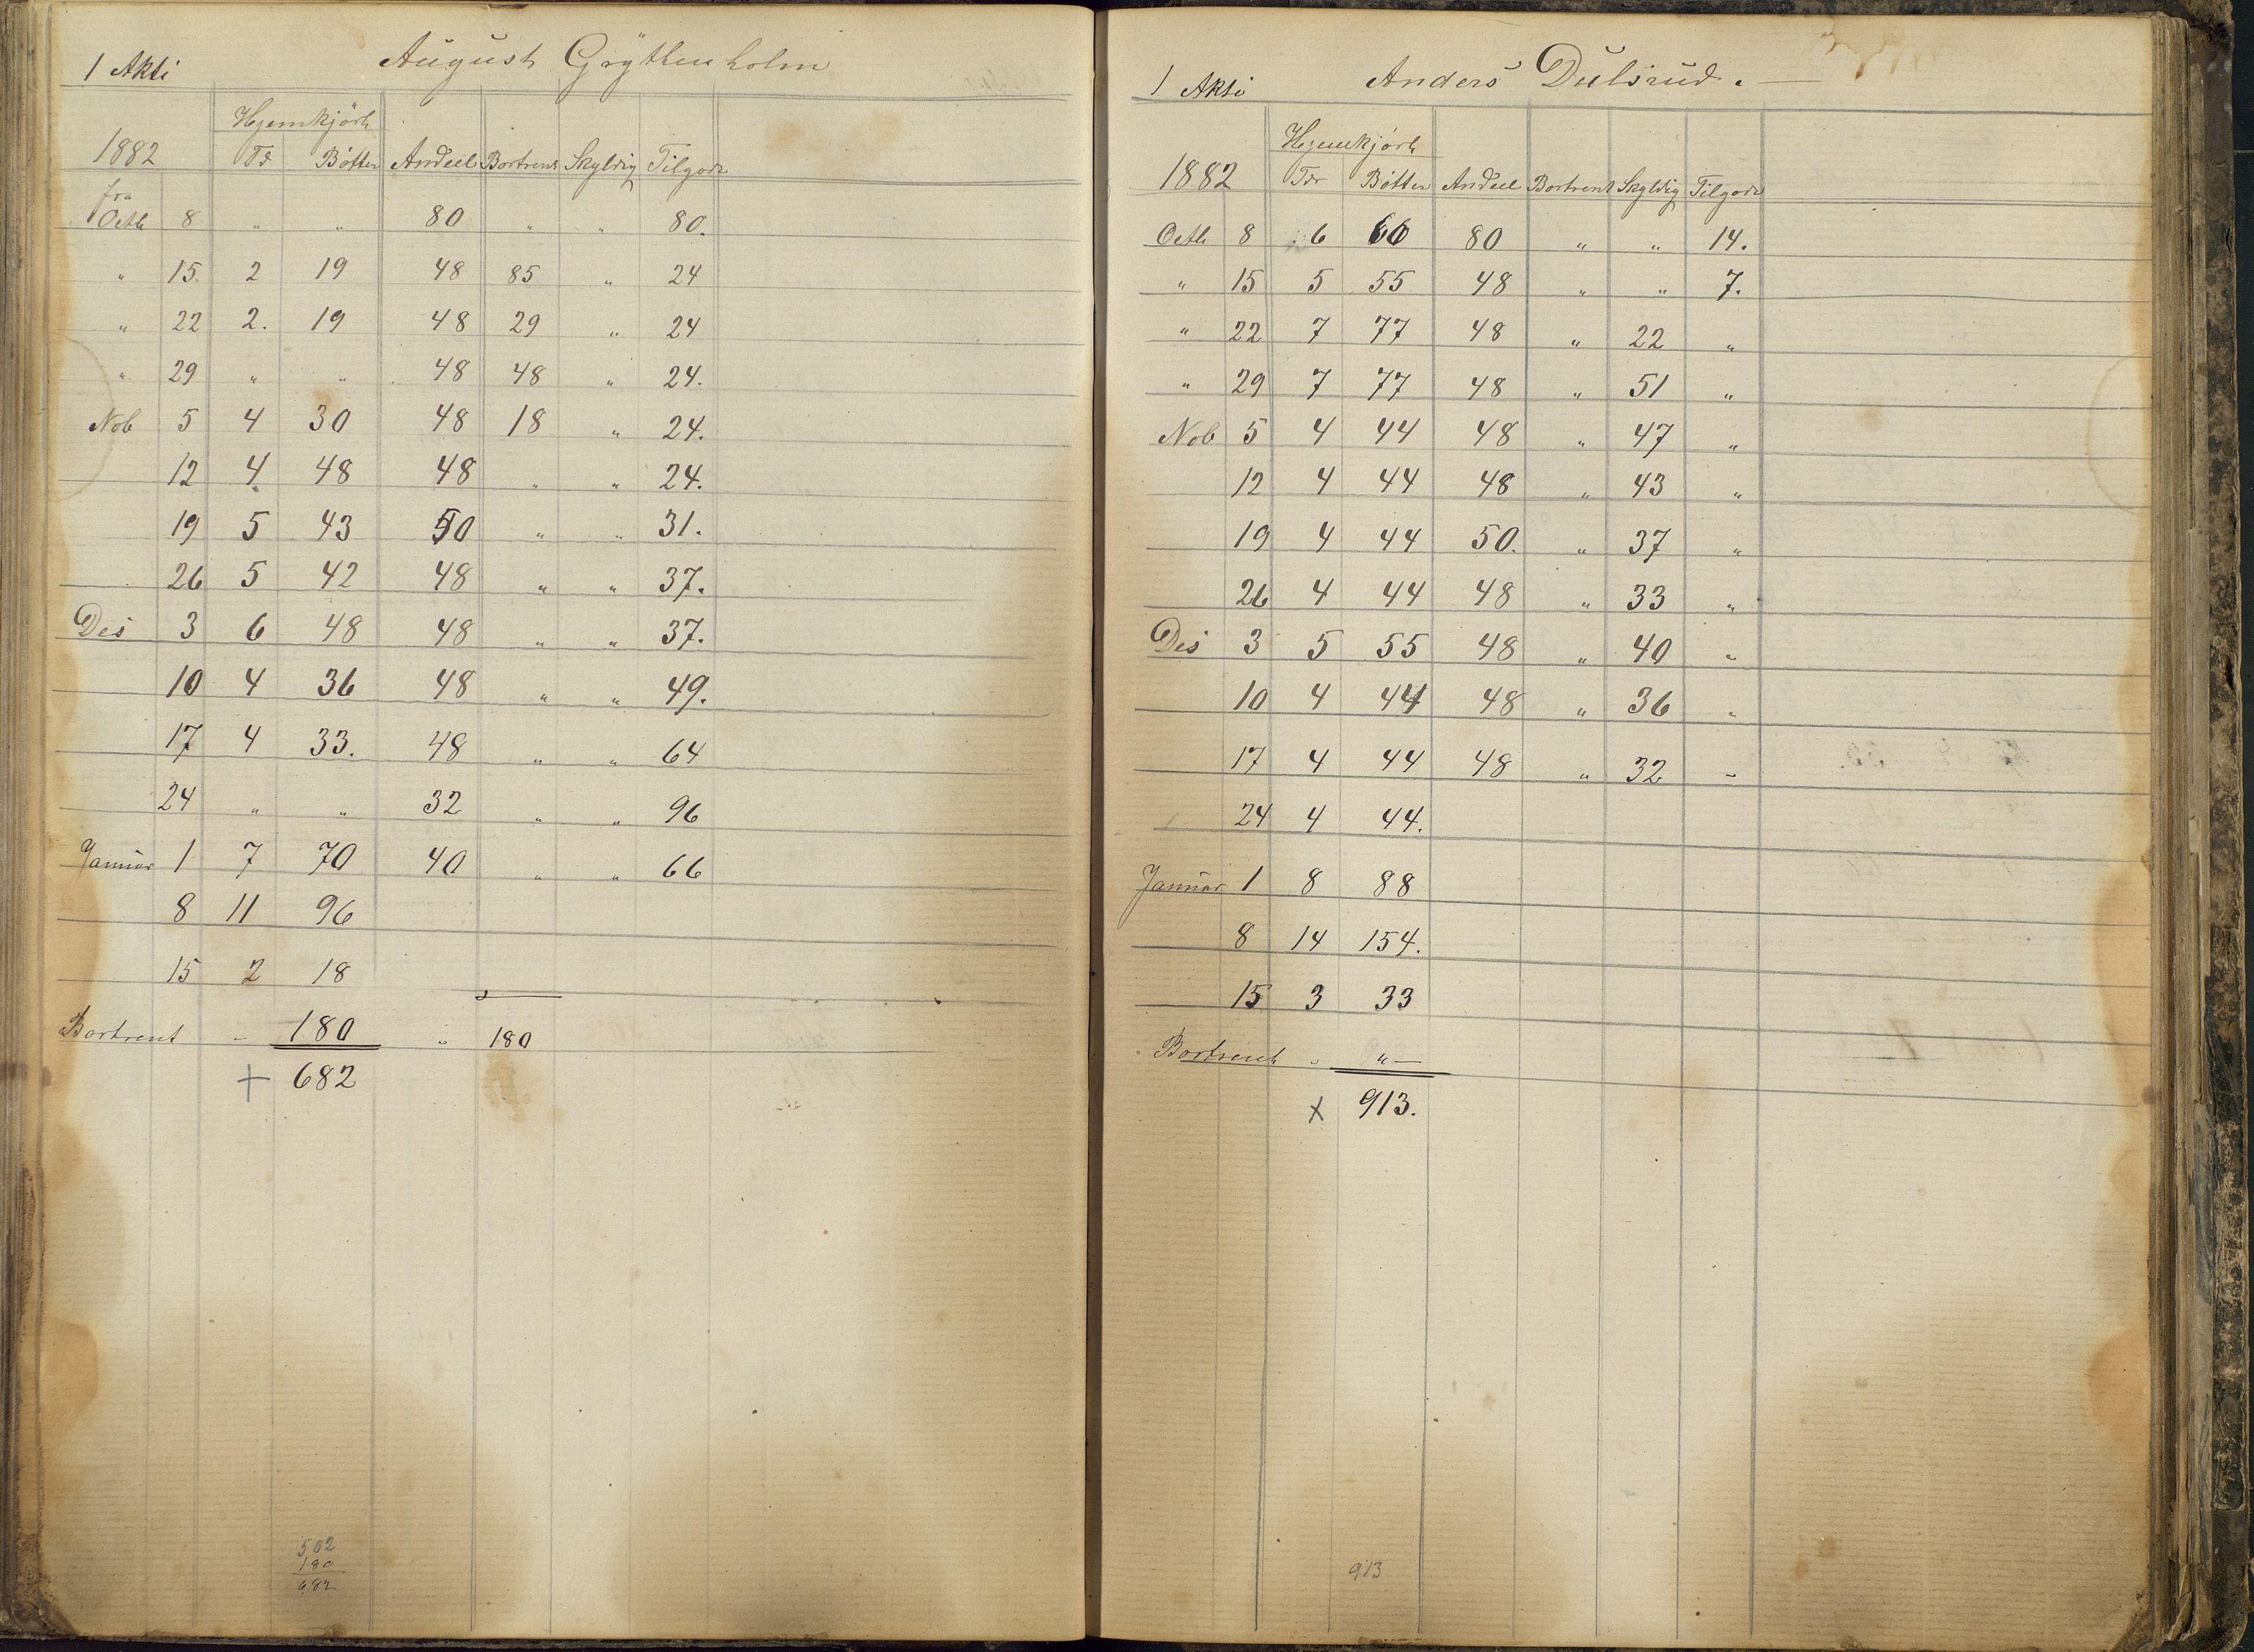 1 Akti August Grythenholm
Hjemkjørt
1882 Td Bøtter Andeel Bortrent Skyldig Tilgode
fra
Octb 8 " " 80 " " 80.
" 15 2 19 48 85 " 24
" 22 2. 19 48 29 " 24
" 29 " " 48 48 " 24.
Nob 5 4 30 48 18 " 24.
12 4 48 48 " " 24.
19 5 43 50 " " 31.
26 5 42 48 " " 37.
Des 3 6 48 48 " " 37.
10 4 36 48 " " 49.
17 4 33. 48 " " 64
24 " " 32 " " 96
Januar 1 7 70 40 " " 66
8 11 96
15 2 18
Bortrent " 180 " 180
+ 682
502
180
682
1 Akti Anders Dulsrud.
Hjemkjørt
1882 Tdr Bøtter Andeel Bortrent Skyldig Tilgode
Octb 8 6 66 80 " " 14.
" 15 5 55 48 " " 7.
" 22 7 77 48 " 22 "
" 29 7 77 48 " 51 "
Nob 5 4 44 48 " 47 "
12 4 44 48 " 43 "
19 4 44 50. " 37 "
26 4 44 48 " 33 "
Des 3 5 55 48 " 40 "
10 4 44 48 " 36 "
17 4 44 48 " 32 "
24 4 44.
Januar 1 8 88
8 14 154.
15 3 33
Bortrent " "
x 913.
913